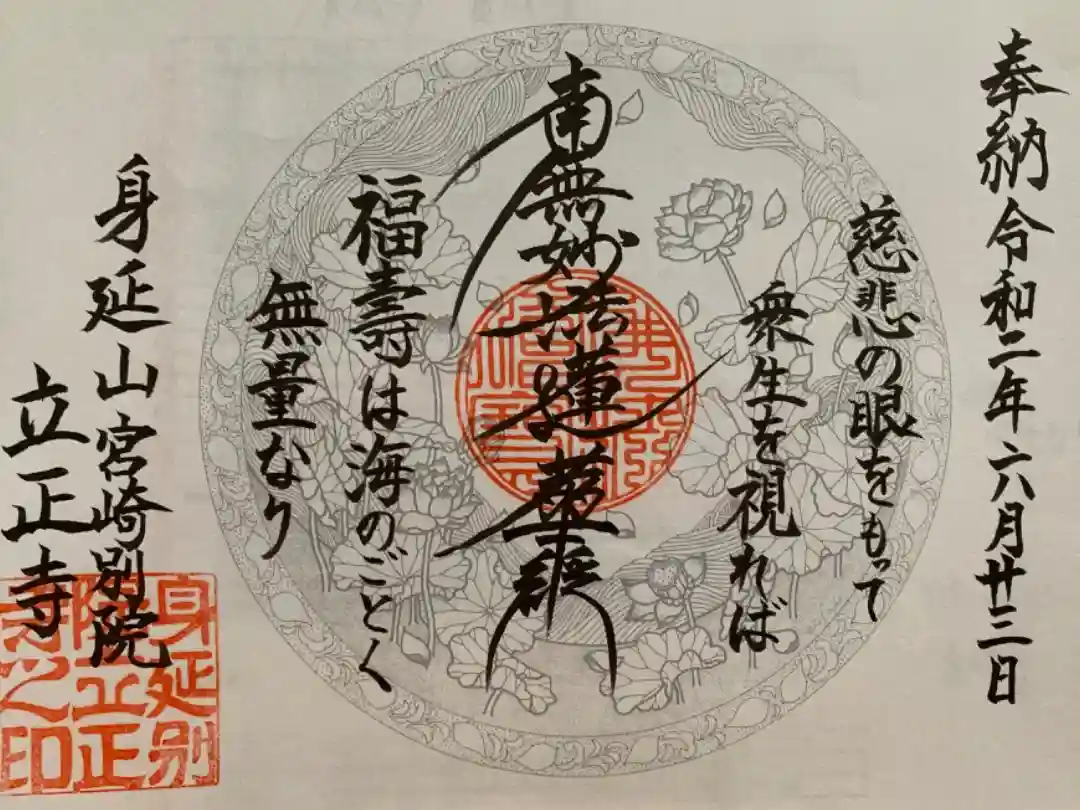 奉納 令和二年六月廿三日
慈悲の眼をもって
衆生を視れば
南無妙法蓮華経
福壽は海のごとく
無量なり
身延山宮崎別院
立正寺
身延別
院立正
寺之印